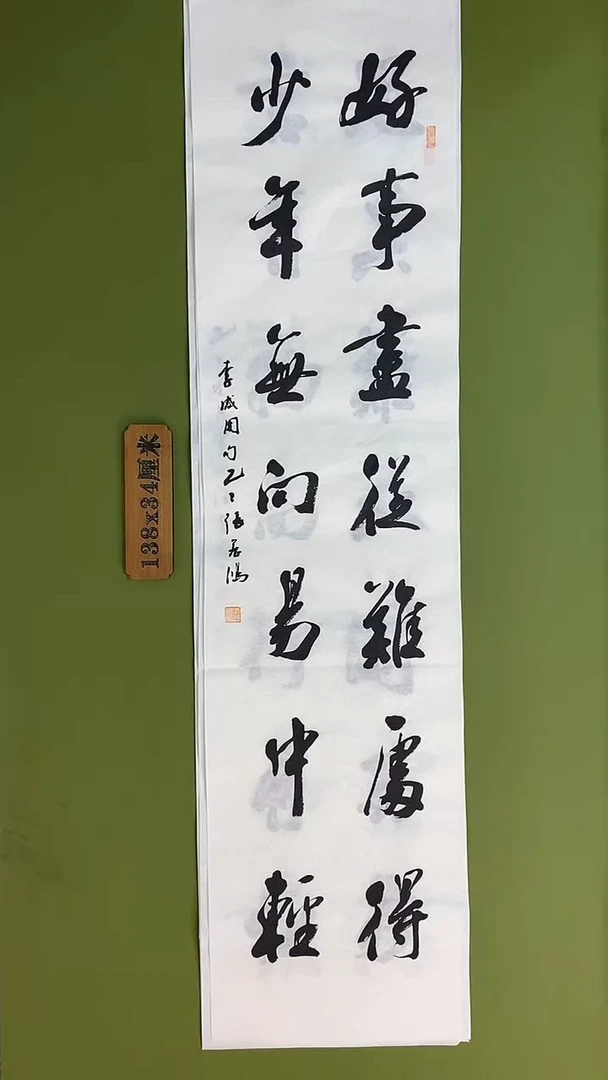 好事盡從難處得
少年無向易中輕
李成用句乙巳張若鴻
138x34厘米